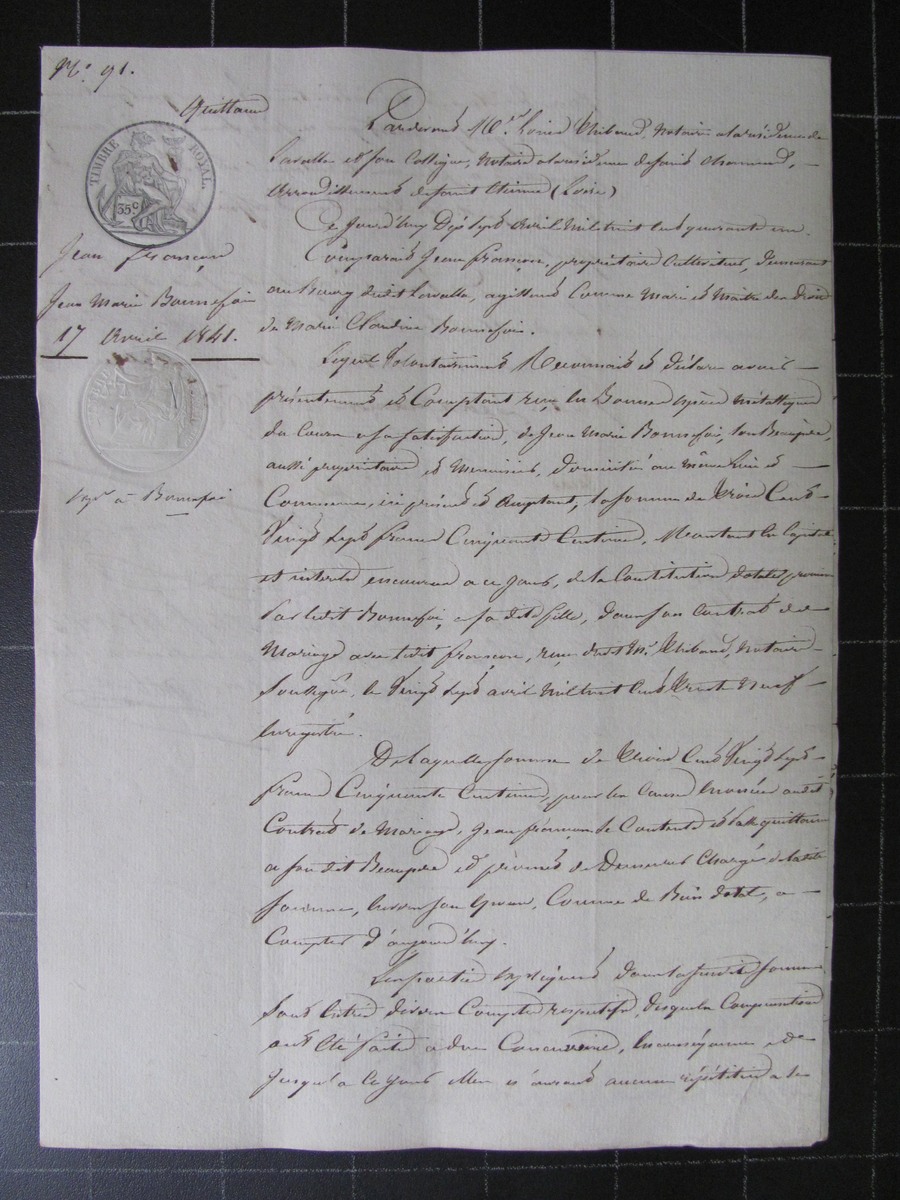 N.° 91.
Quittance
TIMBRE ROYAL.
35 c
Jean françon
Jean Marie Bonnefoi
17 Avril 1841.
Exp.on à Bonnefoi
Pardevant M.e Louis Thibaud, Notaire à la résidence de
Lavalla et son Collègue, Notaire à la résidence de saint chamond,
Arrondissement de saint Etienne (Loire)
Ce Jourd'huy Dix sept Avril Mil huit cent quarante un.
Comparait Jean françon, propriétaire Cultivateur, demeurant
au Bourg dudit Lavalla, agissant Comme Mari et Maitre des droits
de Marie Claudine Bonnefoi.
Lequel Volontairement Reconnait et déclare avoir
présentement et Comptant reçu en Bonnes espèces métalliques
du Cours à sa satisfaction, de Jean Marie Bonnefoi, son Beaupère,
aussi propriétaire et Menuisier, domicilié au même lieu et
Commune, ici présent et acceptant, la somme de Trois Cent
Vingt sept francs Cinquante Centimes, Montant en Capital
et intérêts encourus à ce jour, de la Constitution dotale promise
Par ledit Bonnefoi, à sa dite fille, dans son Contrat de
Mariage avec ledit françon, reçu dudit M.e Thibaud, Notaire
Soussigné, le Vingt sept avril Mil huit Cent Trente Neuf
Enregistré.
De laquelle somme de Trois Cent Vingt sept
francs Cinquante Centimes, pour les Causes énoncées audit
Contrat de Mariage, Jean françon se Contente et passe quittance
à son dit Beaupère et promet de Demeurer Chargé de ladite
somme, envers son épouse, Comme de Bien dotal, à
Compter d'aujourd'huy.
Les parties expliquent dans la susdite somme
sont entrés divers Comptes respectifs, desquels Compensation
ont été faite à due Concurrence, en conséquence de
Jusqu'à ce jour elles n'auront aucune répétition à se